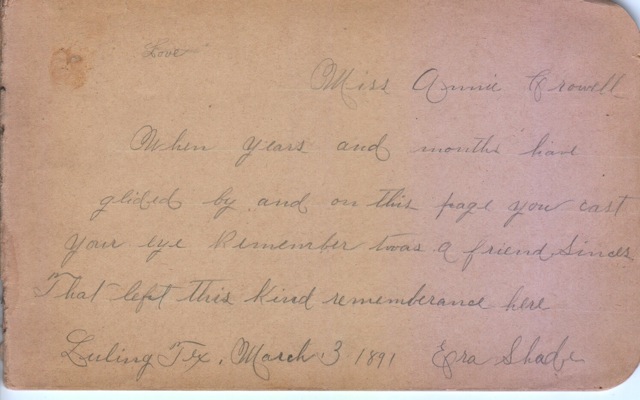 Love
Miss Annie Crowell
When years and months have
glided by and on this page you cast
your eye Remember twas a friend Sinces
That left this kind rememberance here
Luling Tex. March 3 1891 Ezra Shade